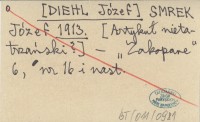 [DIEHL Józef] SMREK
Józef 1913. [Artykuł nieta-
trzański?] – „Zakopane”
6, nr 16 i nast.